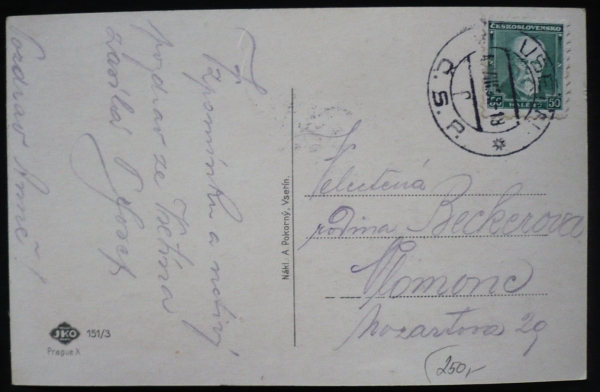 Vzpomínku a
pozdrav ze Vsetína
zasílá Josef
Pozdrav
Nákl. A. Pokorný, Vsetín.
JKO
151/3
Prague X
ČESKOSLOVENSKO
50
50
Č.S.P.
Velectěná
rodina Beckerova
Olomouc
Mozartova 29
250,-